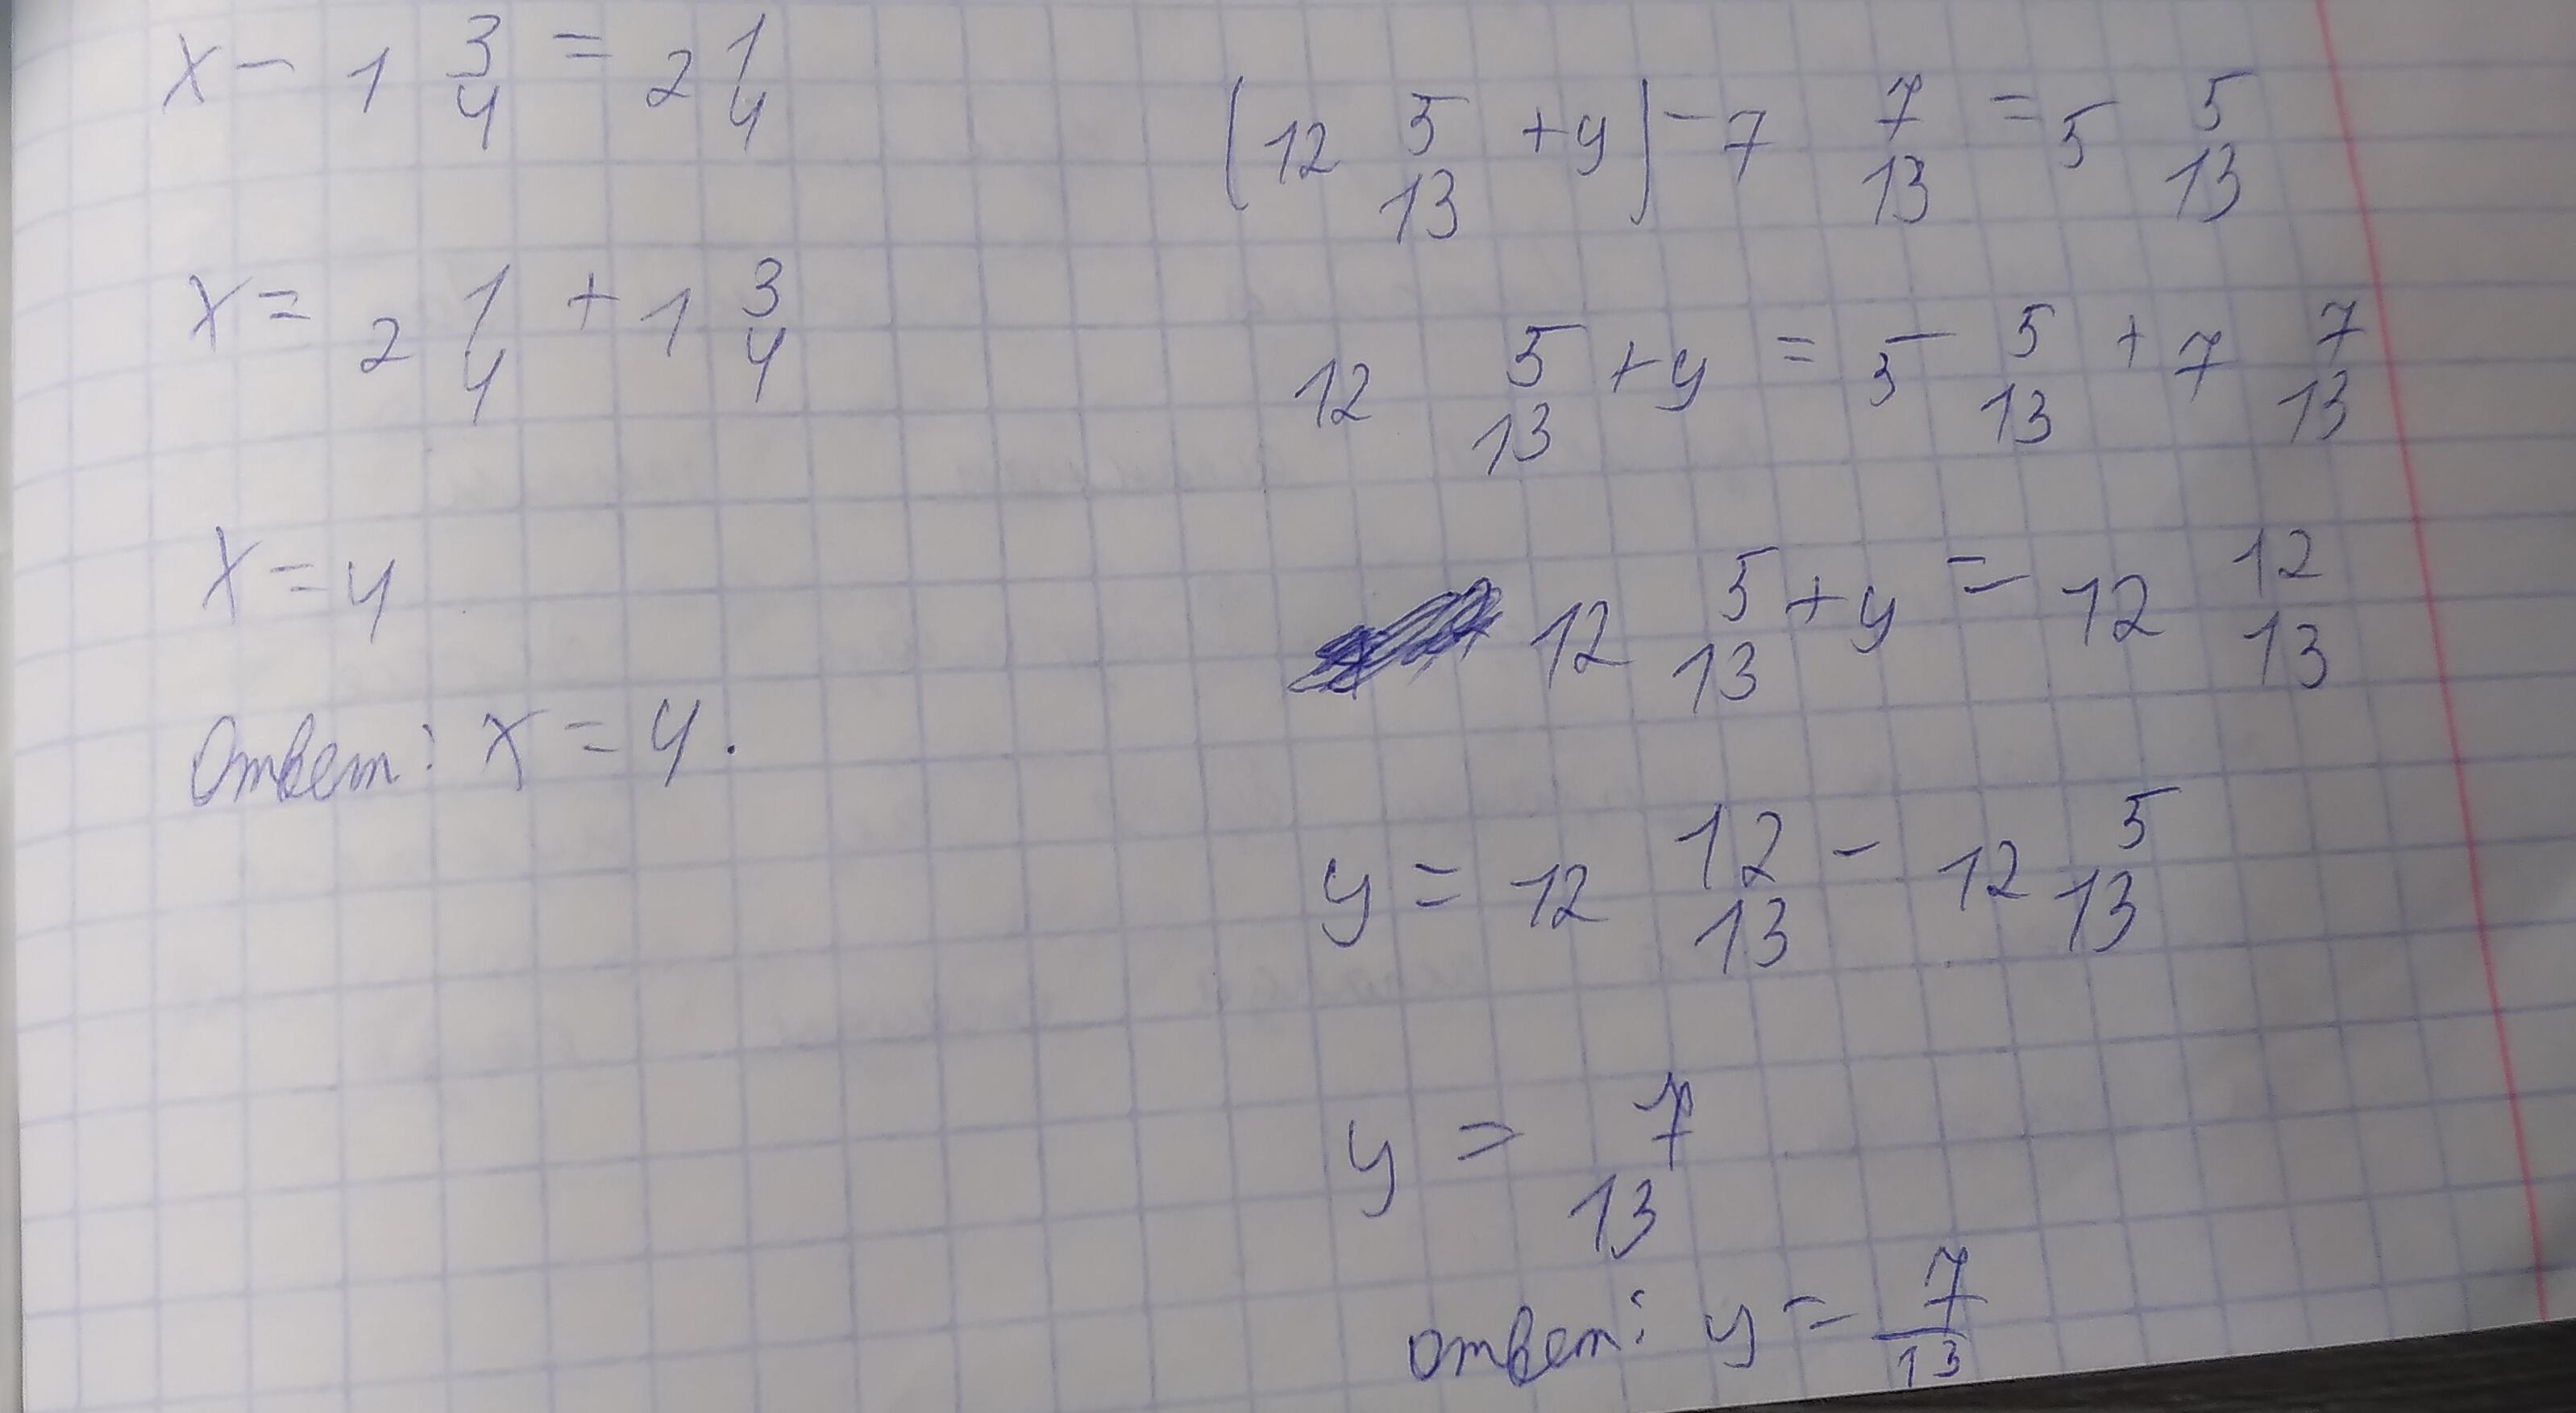 x - 1 3/4 = 2 1/4
x = 2 1/4 + 1 3/4
x = 4
Ответ: x = 4.
(12 5/13 + y) - 7 7/13 = 5 5/13
12 5/13 + y = 5 5/13 + 7 7/13
12 5/13 + y = 12 12/13
y = 12 12/13 - 12 5/13
y = 7/13
ответ: y = 7/13